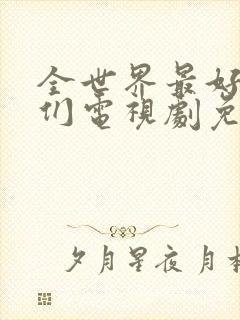 全世界最好
们電視劇免
夕月星夜月